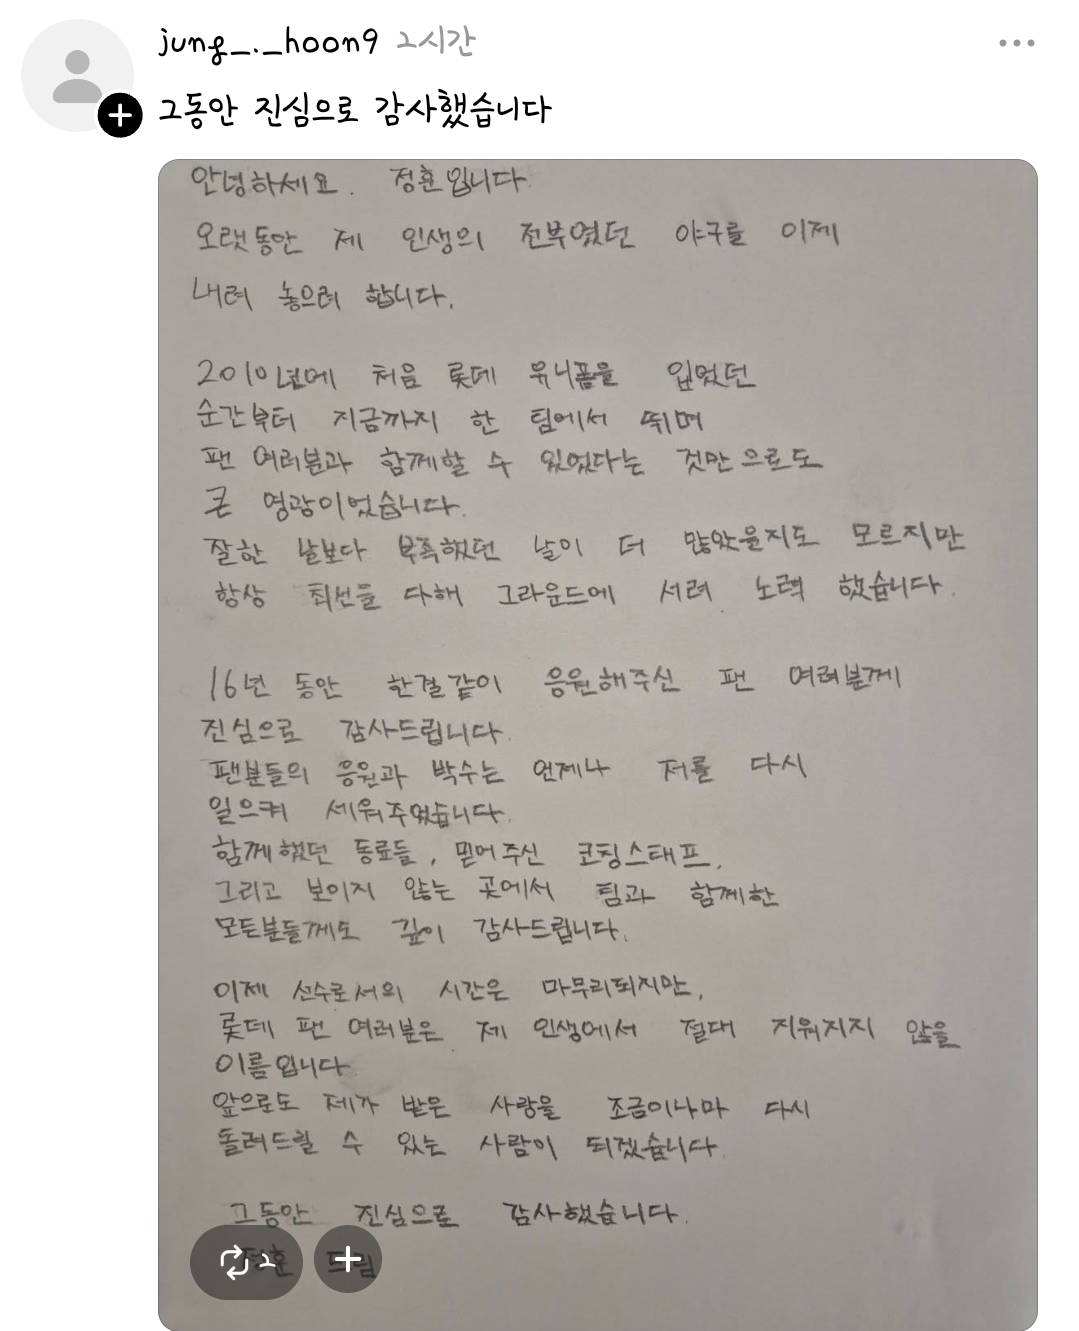 jung_._hoon9 2시간
그동안 진심으로 감사했습니다
안녕하세요. 정훈입니다.
오랫동안 제 인생의 전부였던 야구를 이제
내려 놓으려 합니다.
2010년에 처음 롯데 유니폼을 입었던
순간부터 지금까지 한 팀에서 뛰며
팬 여러분과 함께할 수 있었다는 것만으로도
큰 영광이었습니다.
잘한 날보다 부족했던 날이 더 많았을지도 모르지만
항상 최선을 다해 그라운드에 서려 노력 했습니다.
16년 동안 한결같이 응원해주신 팬 여러분께
진심으로 감사드립니다.
팬분들의 응원과 박수는 언제나 저를 다시
일으켜 세워주었습니다.
함께했던 동료들, 믿어주신 코칭스태프,
그리고 보이지 않는 곳에서 팀과 함께한
모든분들께도 깊이 감사드립니다.
이제 선수로서의 시간은 마무리되지만,
롯데 팬 여러분은 제 인생에서 절대 지워지지 않을
이름입니다
앞으로도 제가 받은 사랑을 조금이나마 다시
돌려드릴 수 있는 사람이 되겠습니다.
그동안 진심으로 감사했습니다.
정훈 드림
2